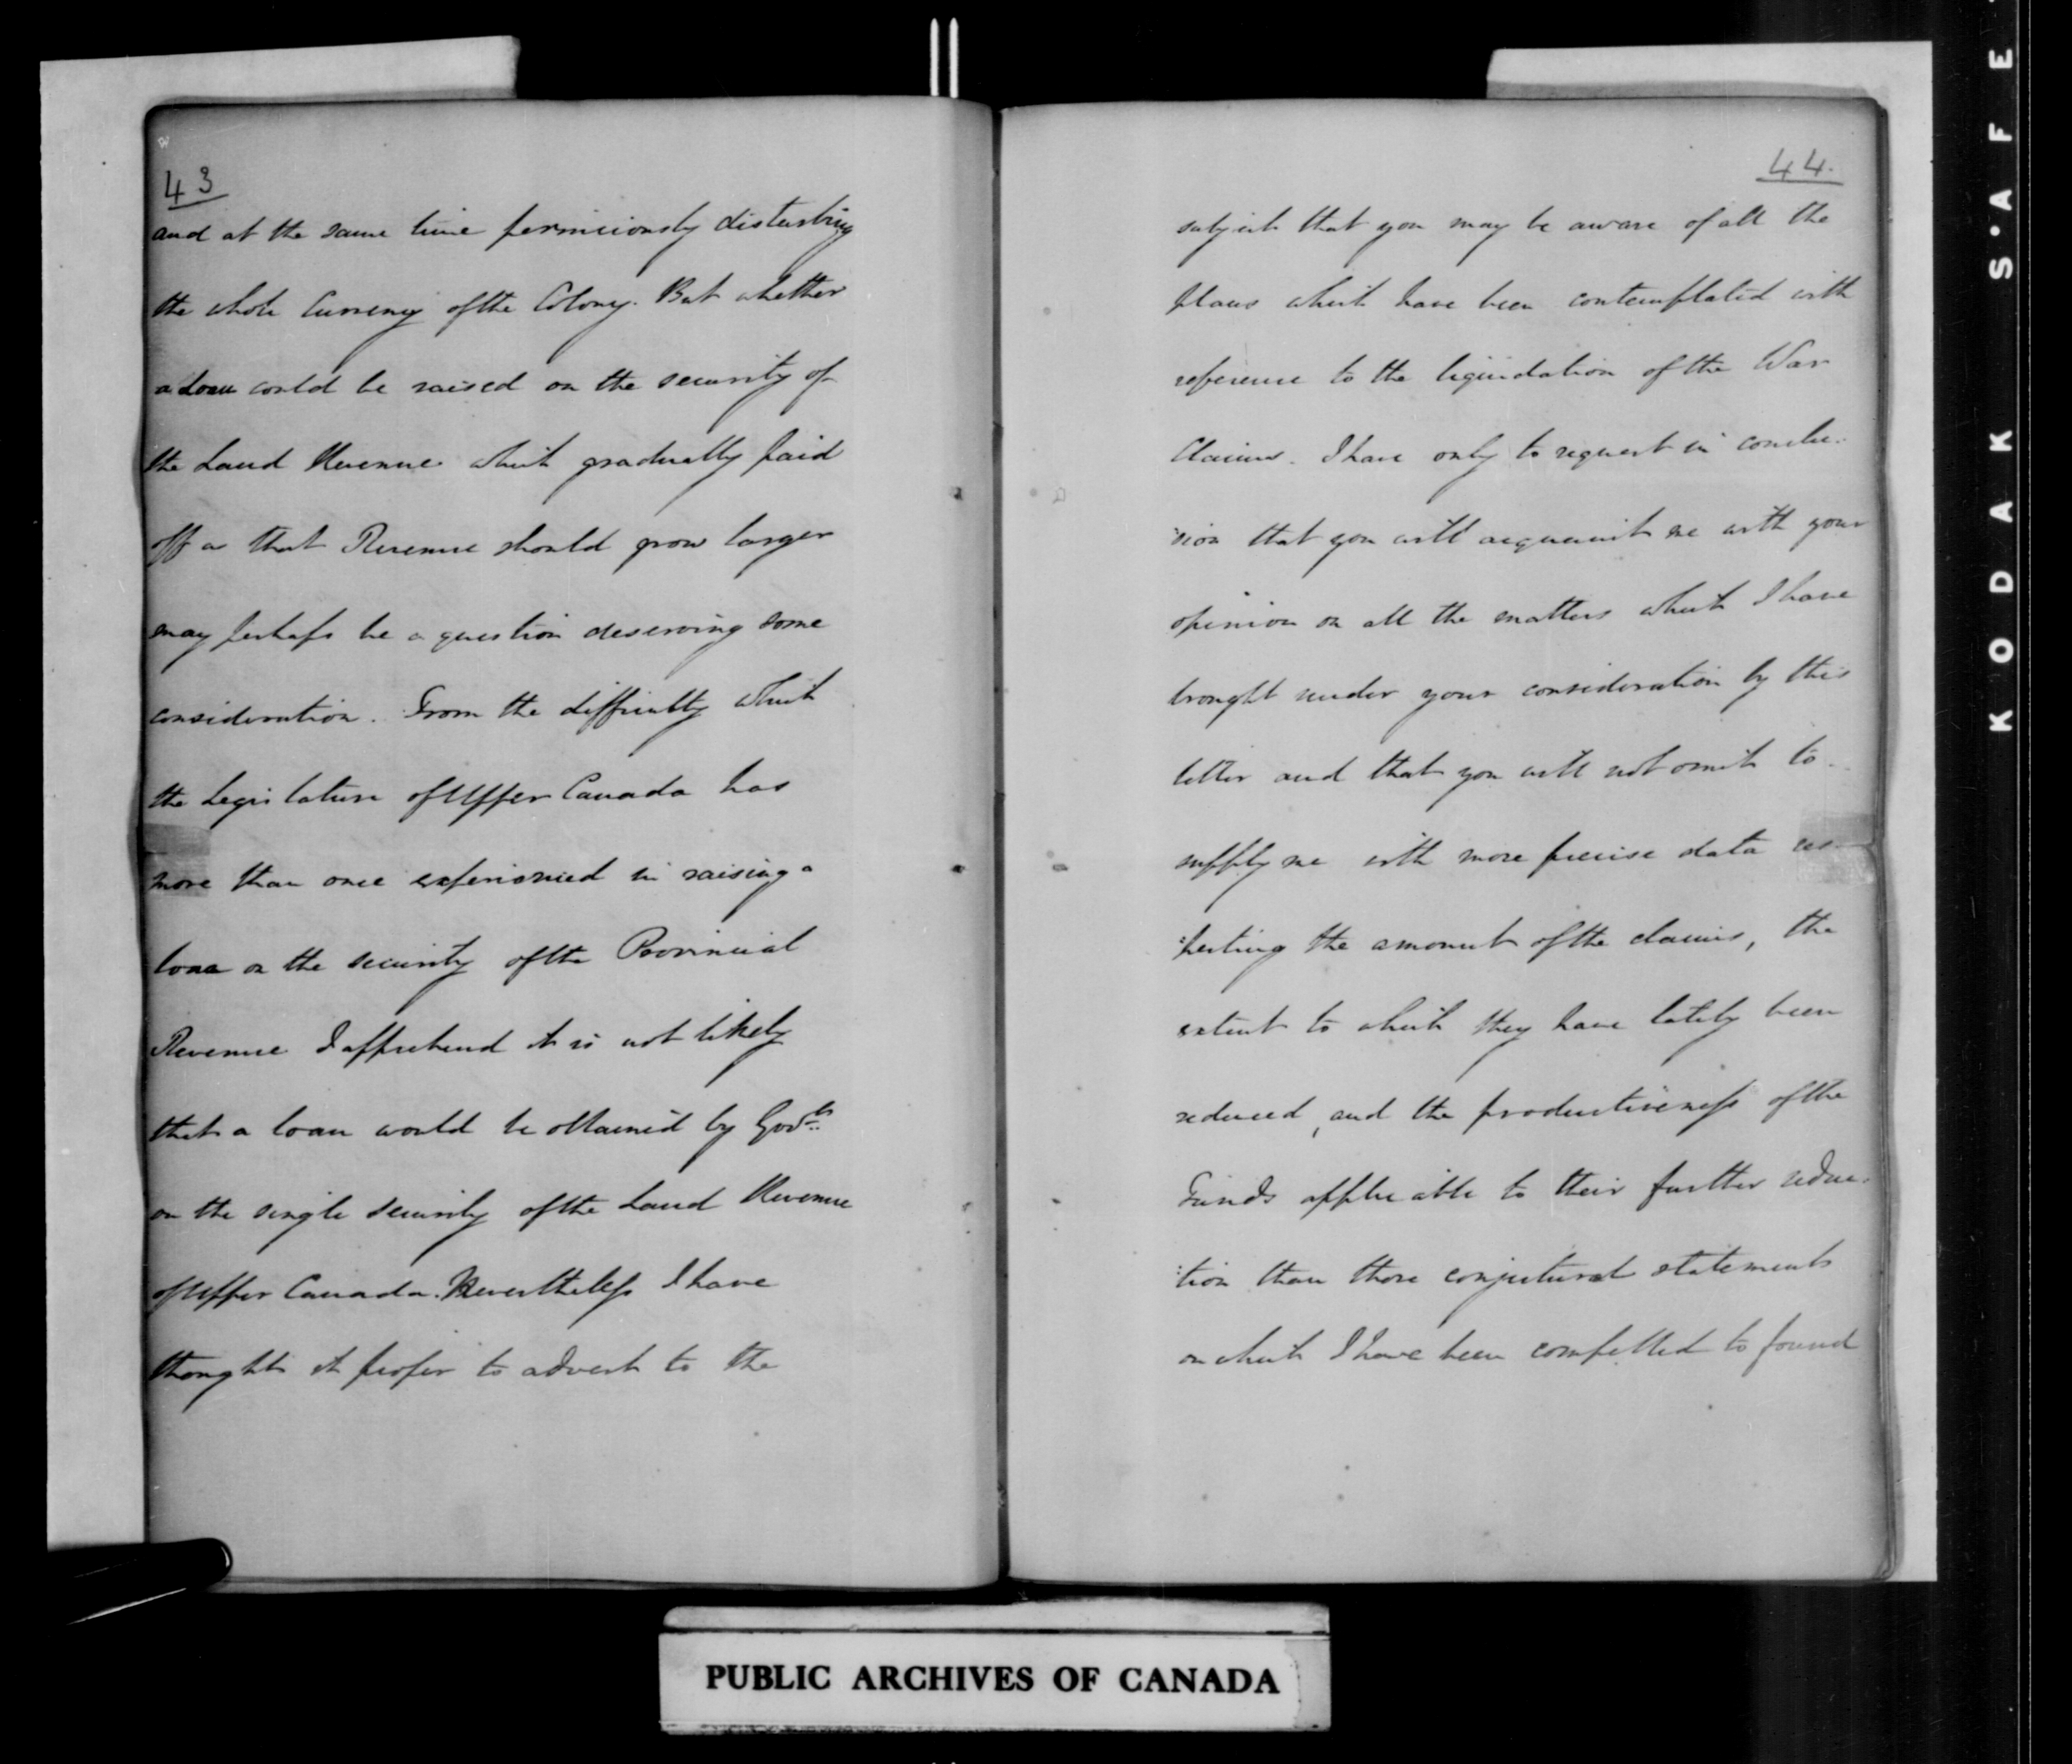 43
and at the same time perniciously disturbing
the whole Currency of the Colony. But whether
a Loan could be raised on the security of
the Land Revenue which gradually paid
off as that Revenue should grow larger
may perhaps be a question deserving some
consideration. From the difficulty which
the Legislature of Upper Canada has
more than once experienced in raising a
loan on the security of the Provincial
Revenue I apprehend it is not likely
that a loan would be obtained by Govt.
on the single security of the Land Revenue
of Upper Canada. Nevertheless I have
thought it proper to advert to the
44.
subject that you may be aware of all the
plans which have been contemplated with
reference to the liquidation of the War
Claims. I have only to request in conclu:
:sion that you will acquaint me with your
opinion on all the matters which I have
brought under your consideration by this
letter and that you will not omit to
supply me with more precise data res
:pecting the amount of the claims, the
extent to which they have lately been
reduced, and the productiveness of the
Funds applicable to their further reduc:
:tion than those conjectural statements
on which I have been compelled to found
PUBLIC ARCHIVES OF CANADA
KODAK S'AFE